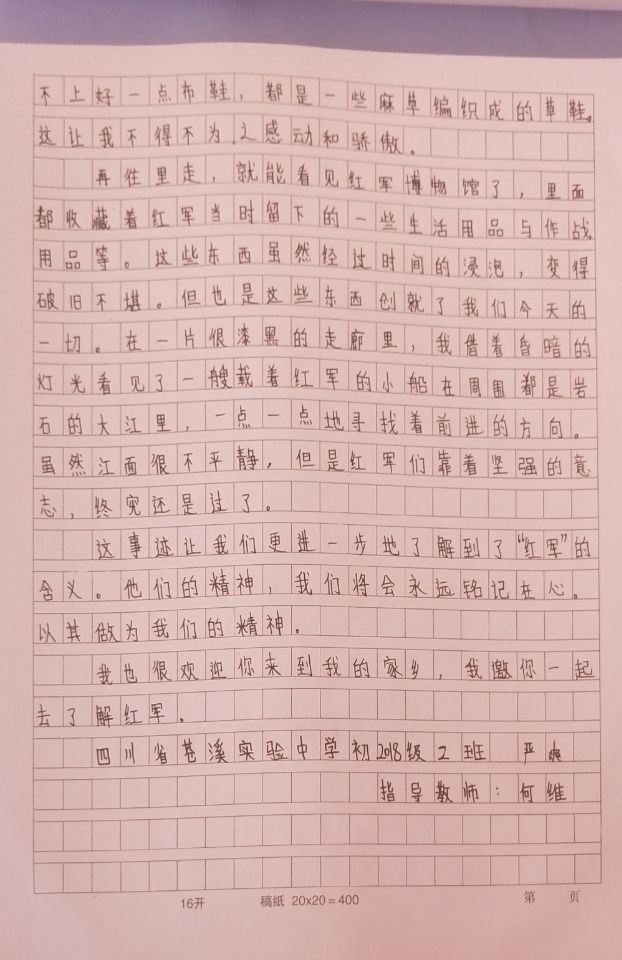 不上好一点布鞋，都是一些麻草编织成的草鞋。
这让我不得不为之感动和骄傲。
再往里走，就能看见红军博物馆了，里面
都收藏着红军当时留下的一些生活用品与作战
用品等。这些东西虽然经过时间的浸泡，变得
破旧不堪。但也是这些东西创就了我们今天的
一切。在一片很漆黑的走廊里，我借着昏暗的
灯光看见了一艘载着红军的小船在周围都是岩
石的大江里，一点一点地寻找着前进的方向。
虽然江面很不平静，但是红军们靠着坚强的意
志，终究还是过了。
这事迹让我们更进一步地了解到了“红军”的
含义。他们的精神，我们将会永远铭记在心。
以其做为我们的精神。
我也很欢迎你来到我的家乡，我邀你一起
去了解红军。
四川省苍溪实验中学初2018级2班 严爽
指导教师：何维
16开 稿纸 20x20=400 第 页